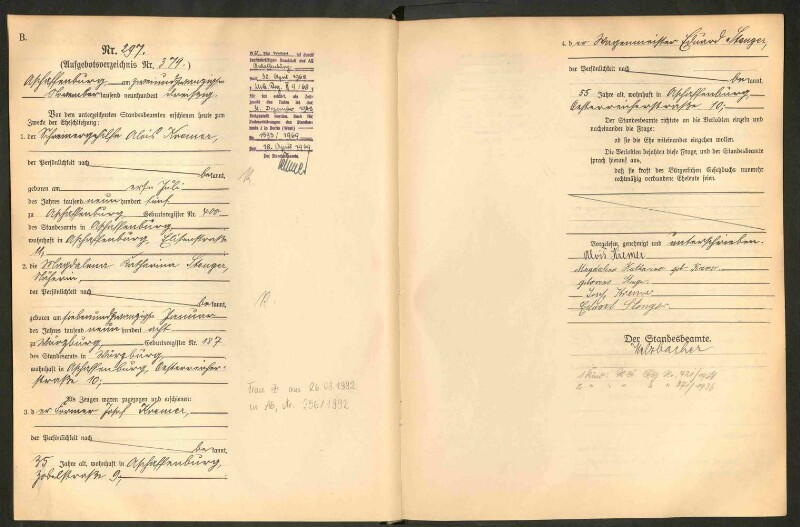 B.
Nr. 297.
(Aufgebotsverzeichnis Nr. 374.)
Aschaffenburg, am zweiundzwanzigsten
November tausend neunhundert dreißig.
Vor dem unterzeichneten Standesbeamten erschienen heute zum
Zwecke der Eheschließung:
1. der Schreinergehilfe Alois Kremer,
der Persönlichkeit nach
bekannt,
geboren am ersten Juli
des Jahres tausend neunhundert fünf
zu Aschaffenburg, Geburtsregister Nr. 400
des Standesamts in Aschaffenburg,
wohnhaft in Aschaffenburg, Elisenstraße
11,
2. die Magdalena Katharina Stenger,
Näherin,
der Persönlichkeit nach
bekannt,
geboren am siebenundzwanzigsten Januar
des Jahres tausend neunhundert acht
zu Würzburg, Geburtsregister Nr. 187
des Standesamts in Würzburg,
wohnhaft in Aschaffenburg, Oesterreicher-
straße 10;
Als Zeugen waren zugezogen und erschienen:
3. der Former Josef Kremer,
der Persönlichkeit nach
bekannt,
35 Jahre alt, wohnhaft in Aschaffenburg,
Zobelstraße 9,
Aschaffenburg
12. April 1968
4. Dezember 1943
1535/1969
den 18. April 1969
Der Standesbeamte
Frau † am 26.03.1992
in AB, Nr. 256/1992
4. der Wagenmeister Eduard Stenger,
der Persönlichkeit nach
bekannt,
55 Jahre alt, wohnhaft in Aschaffenburg,
Oesterreicherstraße 10;
Der Standesbeamte richtete an die Verlobten einzeln und
nacheinander die Frage:
ob sie die Ehe miteinander eingehen wollen.
Die Verlobten bejahten diese Frage, und der Standesbeamte
sprach hierauf aus,
daß sie kraft des Bürgerlichen Gesetzbuchs nunmehr
rechtmäßig verbundene Eheleute seien.
Vorgelesen, genehmigt und unterschrieben.
Alois Kremer
Magdalena Katharina
geborene Stenger
Josef Kremer
Eduard Stenger
Der Standesbeamte.